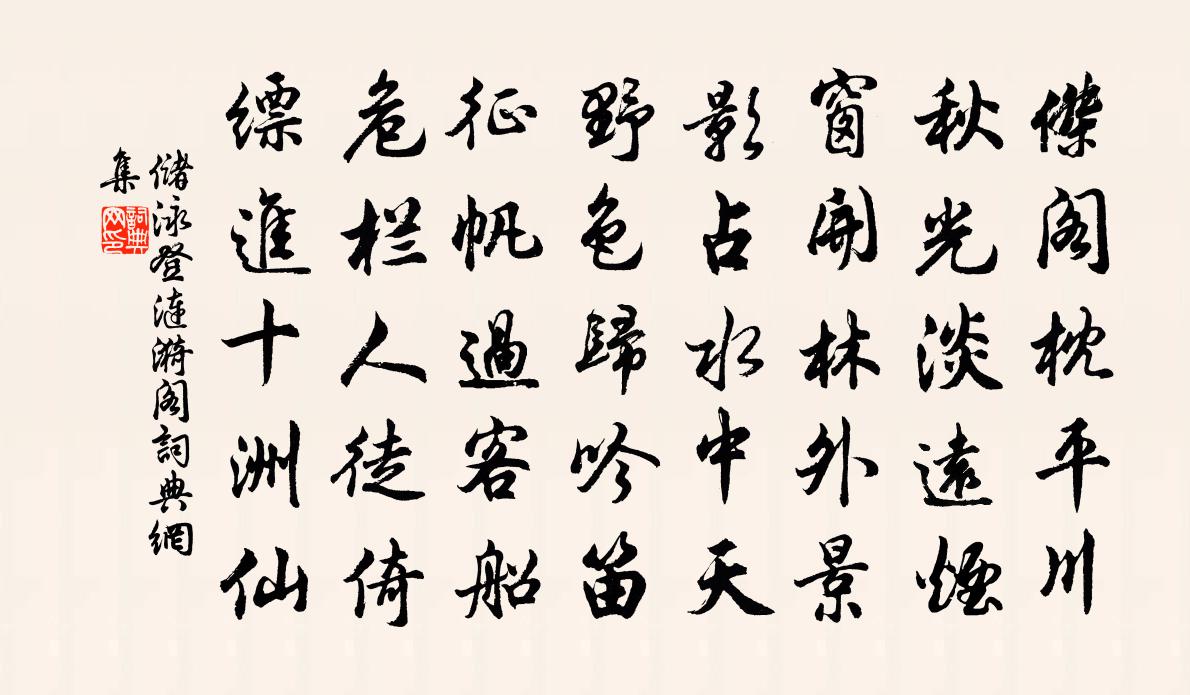 傑閣枕平川
秋光淡遠煙
窗開林外景
影占水中天
野色歸吟笛
征帆過客船
危栏人徒倚
缥進十洲仙
儲泳登漣漪閣詞典網
集
詞典网印